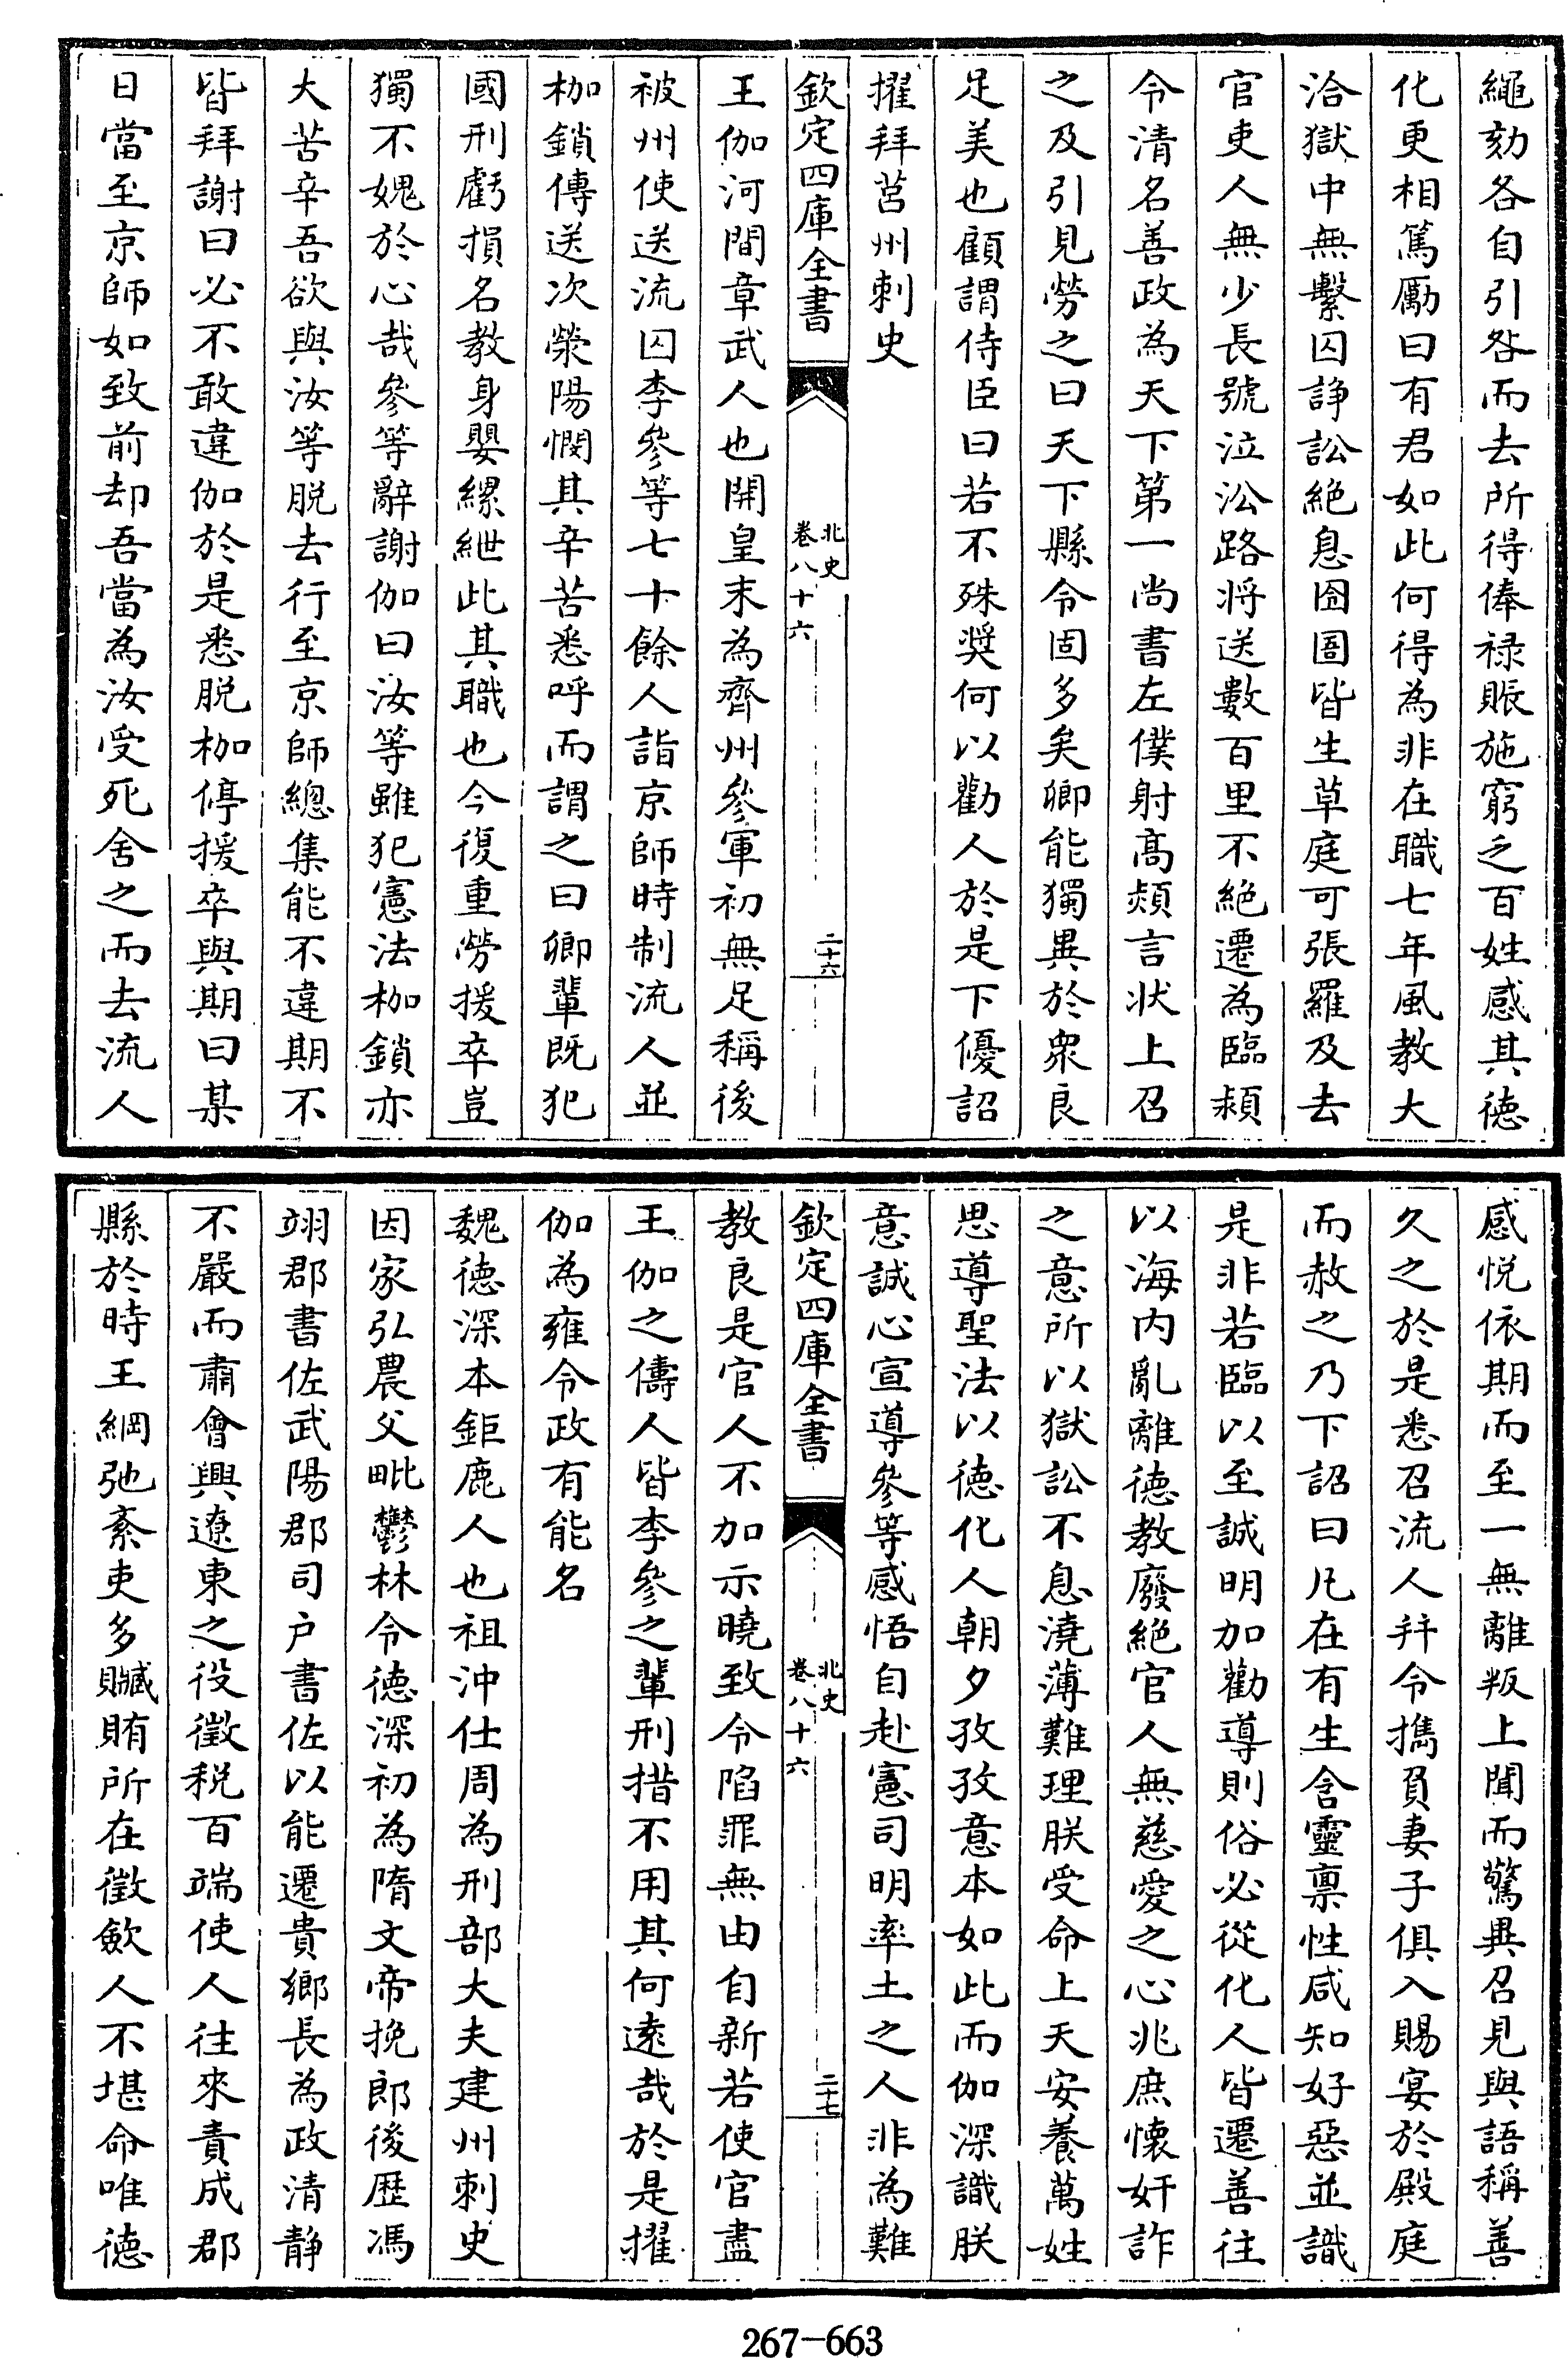 繩劾各自引咎而去所得俸禄賑施窮乏百姓感其徳
化更相篤勵曰有君如此何得為非在職七年風教大
洽獄中無繫囚諍訟絶息囹圄皆生草庭可張羅及去
官吏人無少長號泣㳂路将送數百里不絶遷為臨潁
令清名善政為天下第一尚書左僕射髙熲言状上召
之及引見勞之曰天下縣令固多矣卿能獨異於衆良
足美也顧謂侍臣曰若不殊奨何以勸人於是下優詔
擢拜莒州刺史
欽定四庫全書
北史
卷八十六
二十六
王伽河間章武人也開皇末為齊州參軍初無足稱後
被州使送流囚李參等七十餘人詣京師時制流人並
枷鎖傳送次滎陽憫其辛苦悉呼而謂之曰卿輩既犯
國刑虧損名教身嬰縲紲此其職也今復重勞援卒豈
獨不媿於心哉參等辭謝伽曰汝等雖犯憲法枷鎖亦
大苦辛吾欲與汝等脱去行至京師總集能不違期不
皆拜謝曰必不敢違伽於是悉脱枷停援卒與期曰某
日當至京師如致前却吾當為汝受死舍之而去流人
感悦依期而至一無離叛上聞而驚異召見與語稱善
久之於是悉召流人并令㩦負妻子俱入賜宴於殿庭
而赦之乃下詔曰凡在有生含靈禀性咸知好惡並識
是非若臨以至誠明加勸導則俗必從化人皆遷善往
以海内亂離徳教廢絶官人無慈愛之心兆庶懷奸詐
之意所以獄訟不息澆薄難理朕受命上天安養萬姓
思導聖法以徳化人朝夕孜孜意本如此而伽深識朕
意誠心宣導參等感悟自赴憲司明率土之人非為難
欽定四庫全書
北史
卷八十六
二十七
教良是官人不加示曉致令陷罪無由自新若使官盡
王伽之儔人皆李參之輩刑措不用其何逺哉於是擢
伽為雍令政有能名
魏徳深本鉅鹿人也祖沖仕周為刑部大夫建州刺史
因家弘農父毗鬱林令徳深初為隋文帝挽郎後歴馮
翊郡書佐武陽郡司户書佐以能遷貴鄉長為政清静
不嚴而肅會興遼東之役徵税百端使人往來責成郡
縣於時王綱弛紊吏多贓賄所在徵斂人不堪命唯徳
267-663